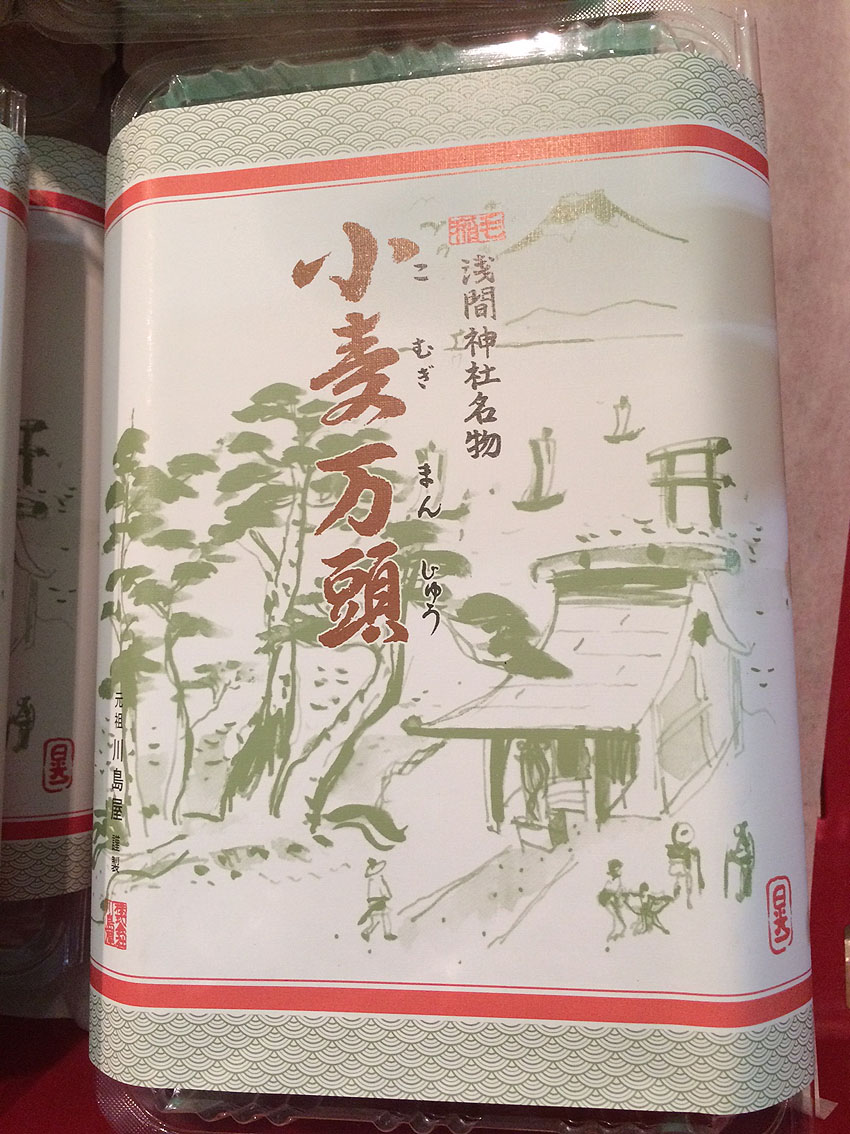 稲毛
浅間神社名物
小麦万頭
こ むぎ まん じゅう
元祖 川島屋 謹製